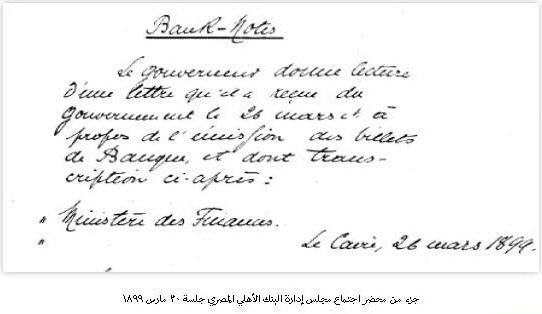 Bank-Notes
Le gouverneur donne lecture
d'une lettre qu'il a reçue du
gouvernement le 26 mars ct à
propos de l'émission des billets
de Banque, et dont trans-
cription ci-après :
" Ministère des Finances.
"
Le Caire, 26 mars 1899.
جزء من محضر اجتماع مجلس إدارة البنك الأهلي المصري جلسة ٣٠ مارس ١٨٩٩